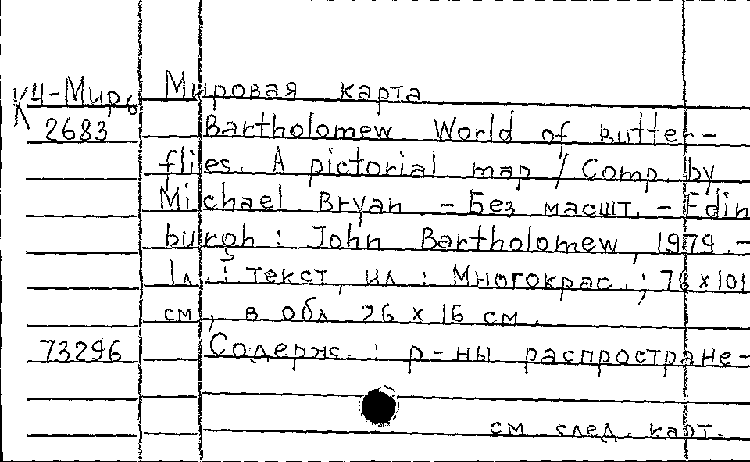 Мировая карта
К4-Мирв
2683
Bartholomew. World of butter-
flies. A pictorial map / Comp. by
Michael Bryan. - Без масшт. - Edin
burgh : John Bartholomew, 1979. -
1 л. : текст, ил. : Многокрас. ; 76 x 101
см, в обл. 26 x 16 см.
73296
Содерж. : р-ны распростране-
см след. карт.